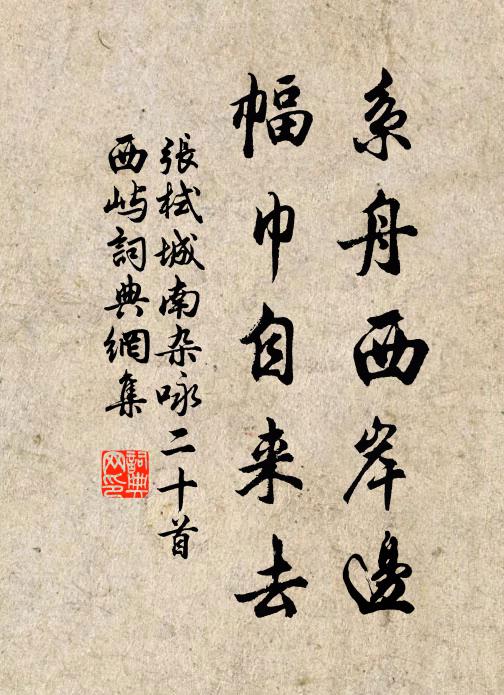 系舟西岸邊
幅巾自来去
張栻城南杂咏二十首
西屿詞典網集
詞典网印